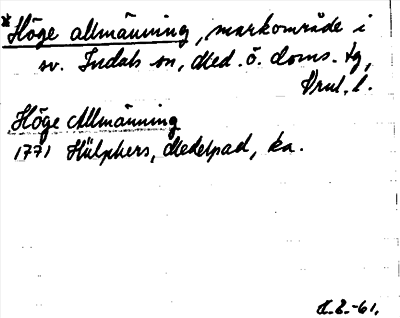 * Höge allmänning, markområde i
sv. Indals sn, Med. ö. doms. tg,
Vnl. l.
Höge Allmänning
1771 Hülphers, Medelpad, ka.
-61.